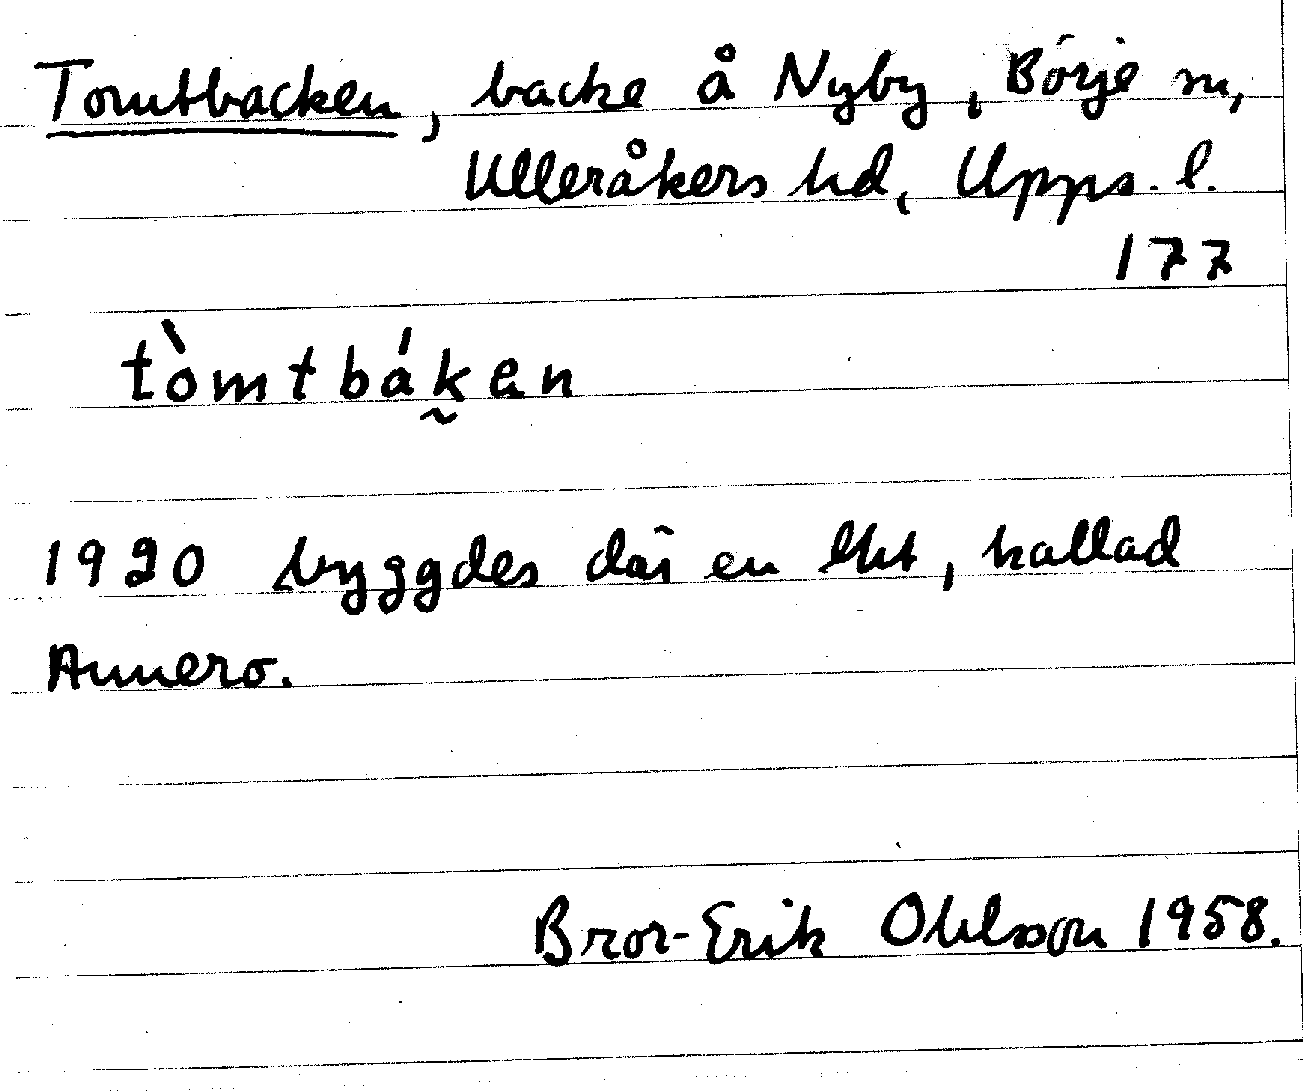 Tomtbacken, backe å Nyby, Börje sn,
Ulleråkers hd, Upps. l.
177
tòmtbák̰en
1920 byggdes där en lht, kallad
Annero.
Bror-Erik Ohlson 1958.